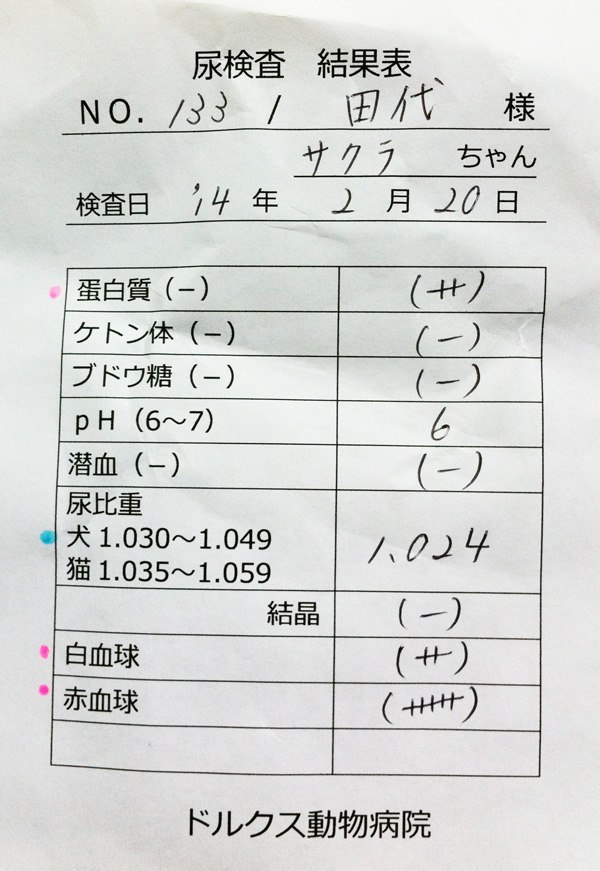 尿検査 結果表
NO. 133 / 田代 様
サクラ ちゃん
検査日 '14 年 2 月 20 日
蛋白質(－) (++)
ケトン体(－) (－)
ブドウ糖(－) (－)
pH(6～7) 6
潜血(－) (－)
尿比重
犬 1.030～1.049 1.024
猫 1.035～1.059
結晶 (－)
白血球 (++)
赤血球 (+++++)
ドルクス動物病院